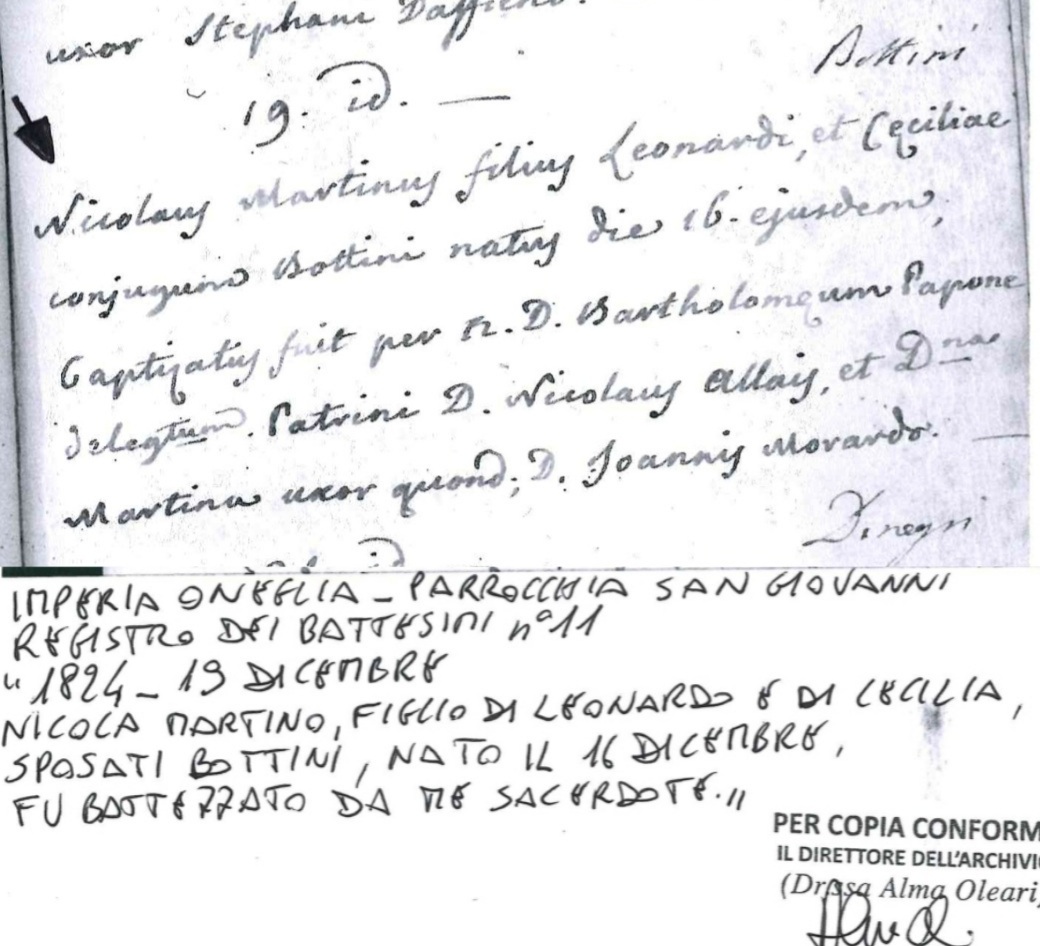 uxor Stephani
Bottini
19. id. —
Nicolaus Martinus filius Leonardi, et Ceciliae
conjugum Bottini natus die 16. ejusdem,
Baptizatus fuit per R. D. Bartholomeum Papone
delegtum. Patrini D. Nicolaus Allais, et Dna
Martina uxor quond; D. Joannis Morardo. —
IMPERIA ONEGLIA - PARROCCHIA SAN GIOVANNI
REGISTRO DEI BATTESIMI n° 11
"1824 - 19 DICEMBRE
NICOLA MARTINO, FIGLIO DI LEONARDO E DI CECILIA,
SPOSATI BOTTINI, NATO IL 16 DICEMBRE,
FU BATTEZZATO DA ME SACERDOTE."
PER COPIA CONFORM
IL DIRETTORE DELL'ARCHIVIO
(Dr.ssa Alma Oleari)